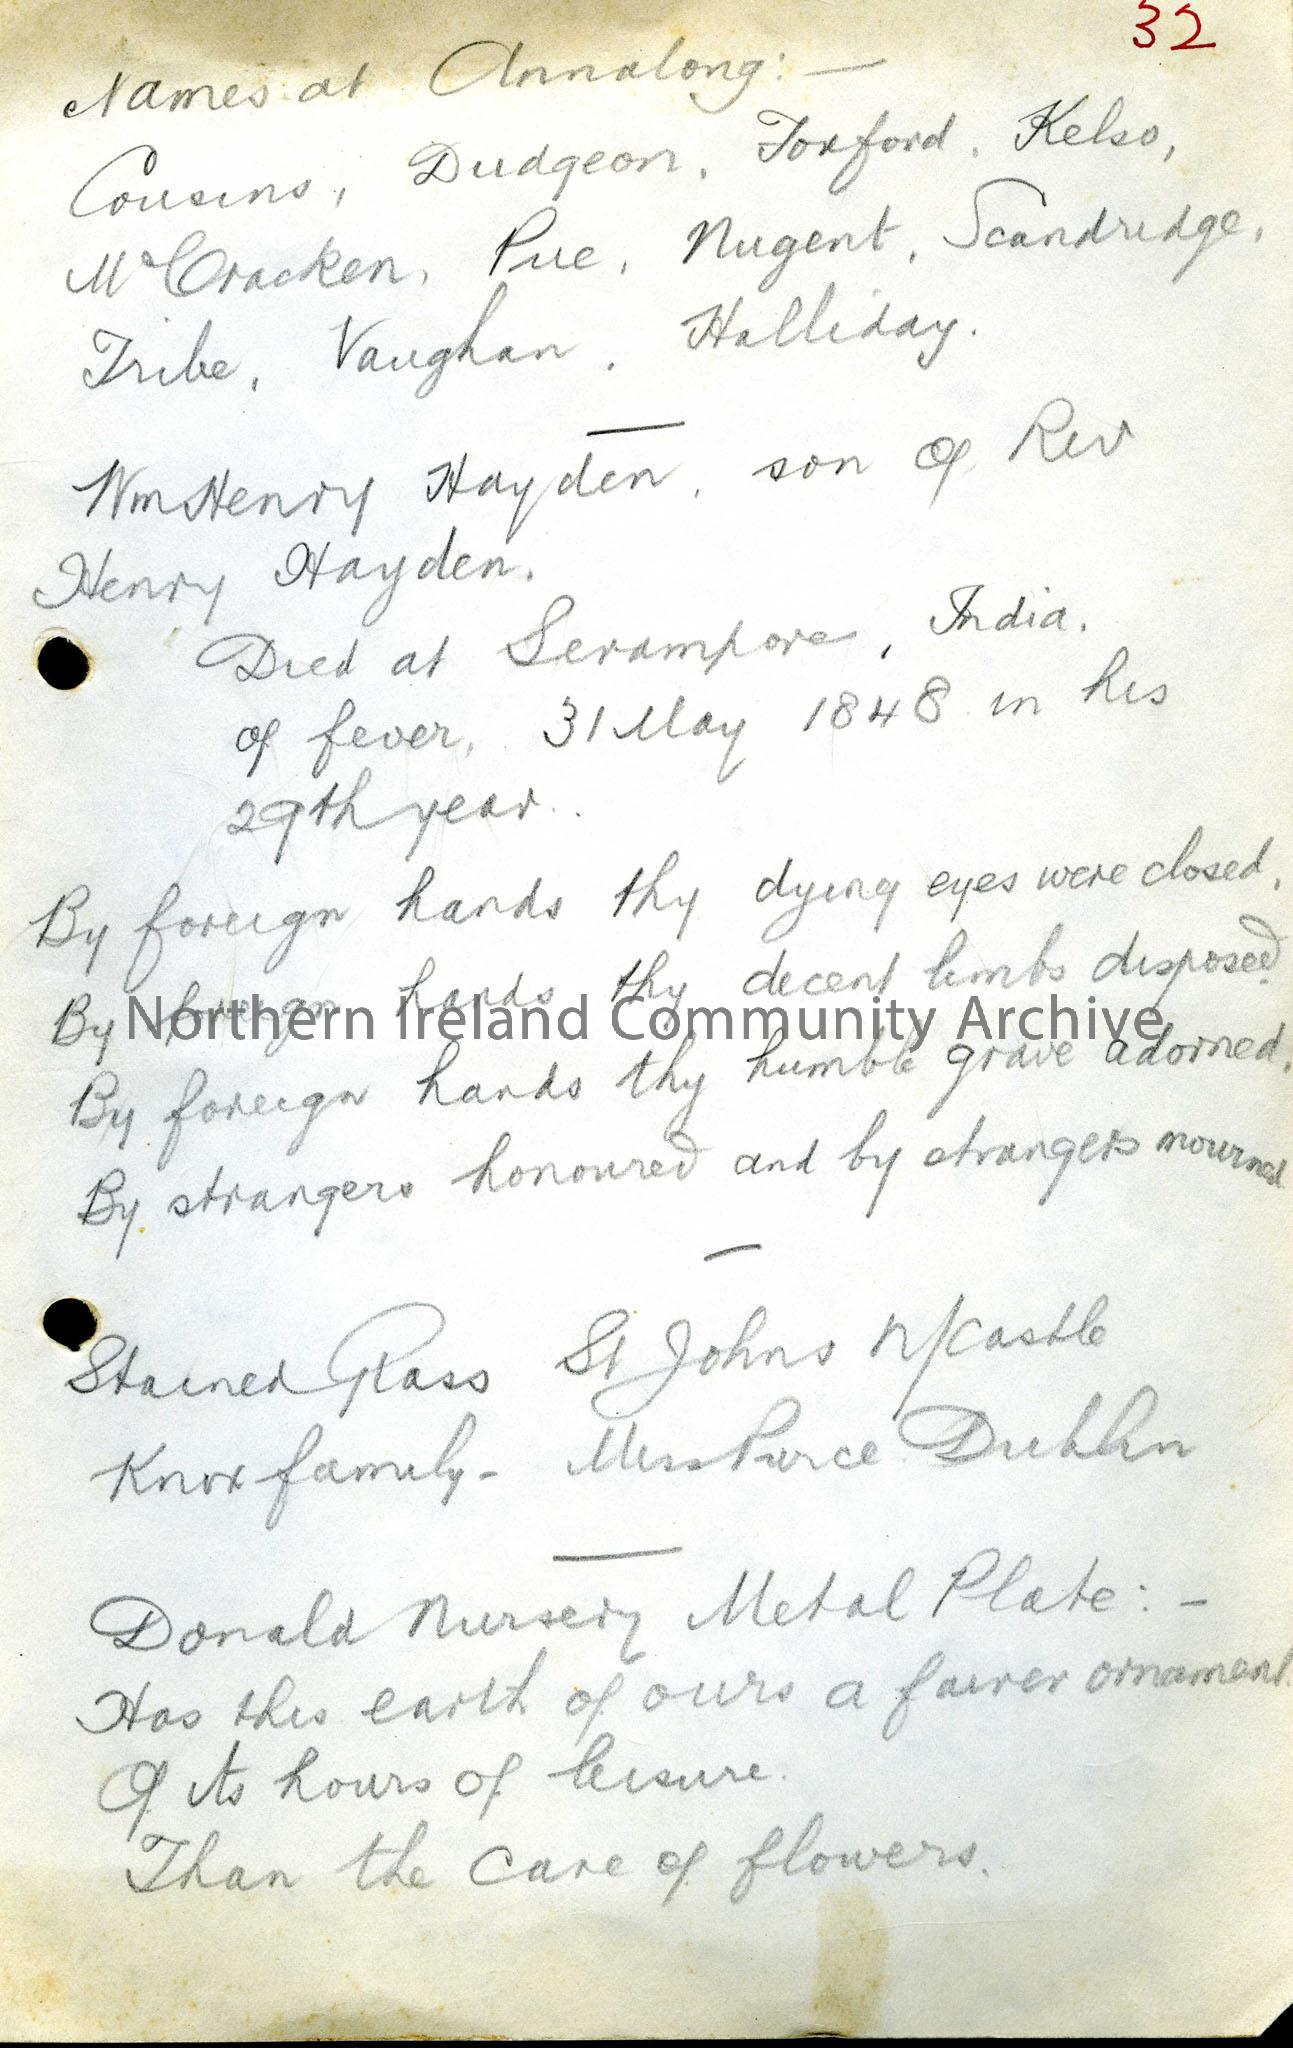 32
Names at Annalong:—
Cousins, Dudgeon, Toxford, Kelso,
McCracken, Pue, Nugent, Scandridge,
Tribe, Vaughan, Halliday.
Wm Henry Hayden, son of Rev
Henry Hayden.
Died at Serampore, India,
of fever, 31 May 1848 in his
29th year.
By foreign hands thy dying eyes were closed,
By foreign hands thy decent limbs disposed
Northern Ireland Community Archive
By foreign hands thy humble grave adorned,
By strangers honoured and by strangers mourned
Stained Glass St Johns N/Castle
Knox family - Miss Pierce Dublin
Donald Nursery Metal Plate:-
Has this earth of ours a fairer ornament
Of its hours of leisure.
Than the care of flowers.